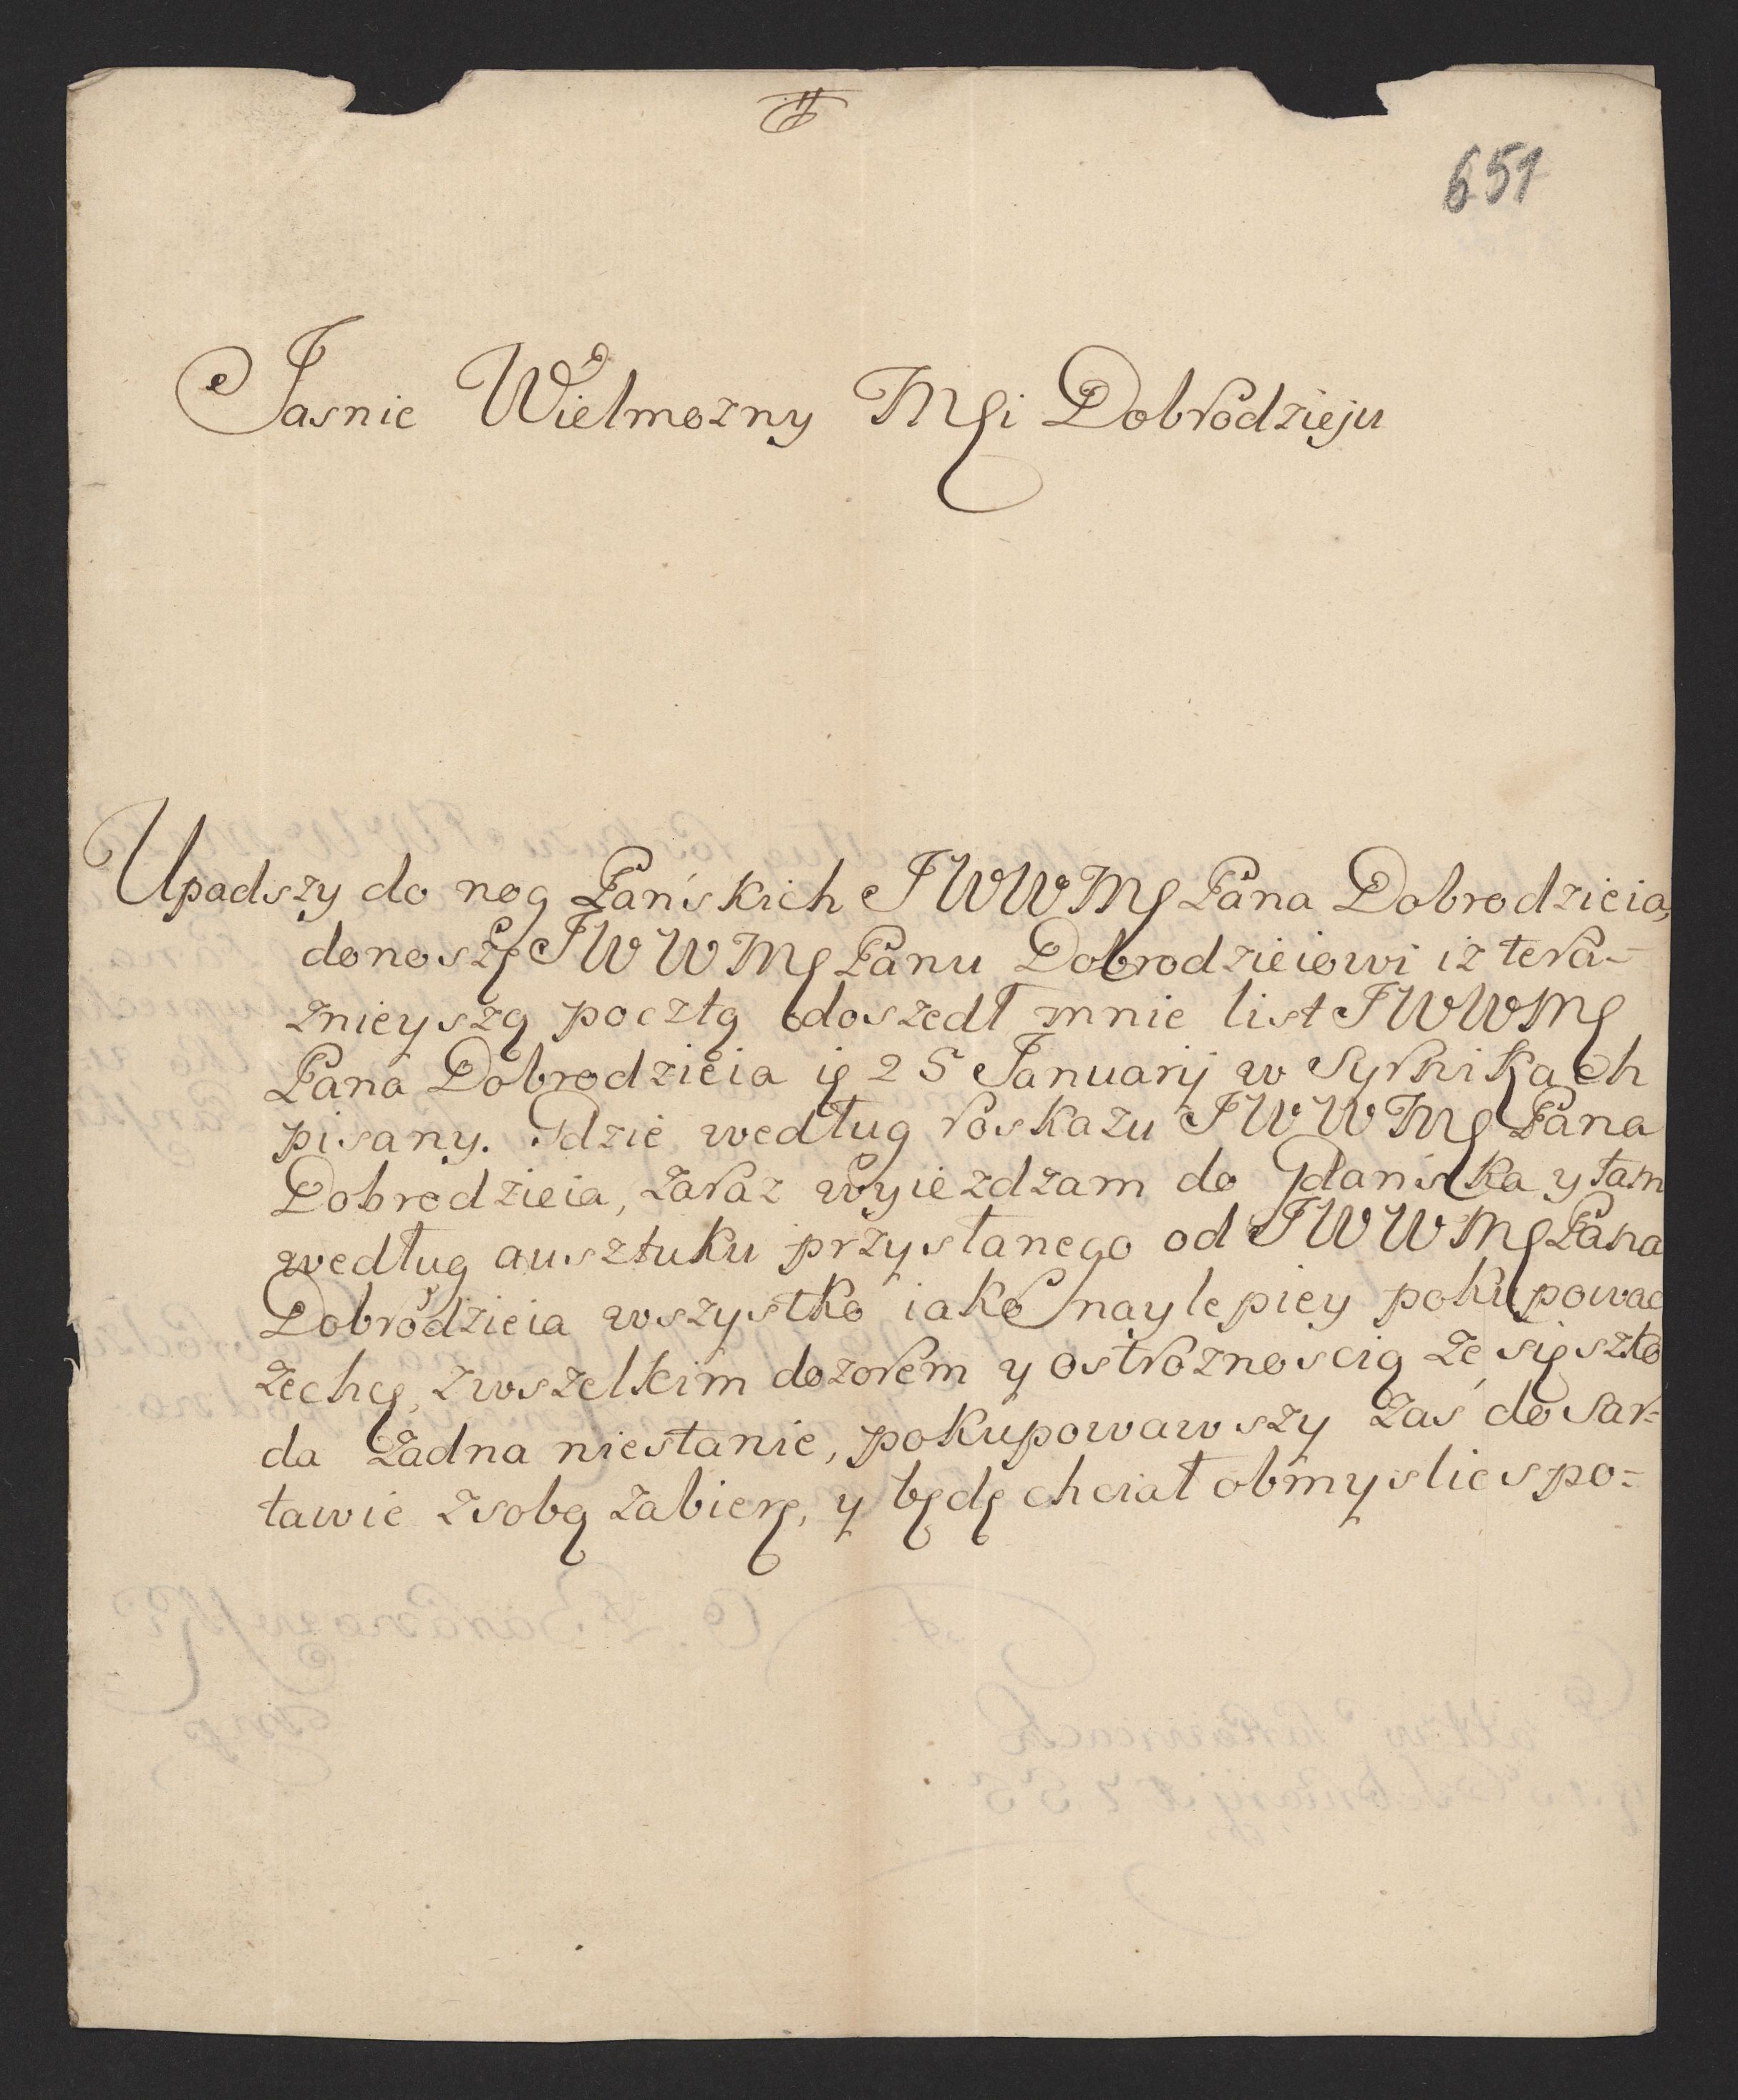 651
Jasnie Wielmozny Mςi Dobrodzieju
Upadszy do nog Pańskich JWWMς Pana Dobrodzieia,
donoszę JWWMς Panu Dobrodzieiowi iz tera-
znieyszą pocztą doszedł mnie list JWWMς
Pana Dobrodzieia ię 25 Januarij w Syrnikach
pisany. Gdzie według roskazu JWWMς Pana
Dobrodzieia, zaraz wyiezdzam do Gdańska y tam
według ausztuku przysłanego od JWWMς Pana
Dobrodzieia wszystko iako naylepiey pokupowac
zechcę, z wszelkim dozorem y ostroznoscią ze się szko
da Zadna niestanie, pokupowawszy zaś do Sar=
tawic zsobą zabierę, y będę chciał obmyslic spo=